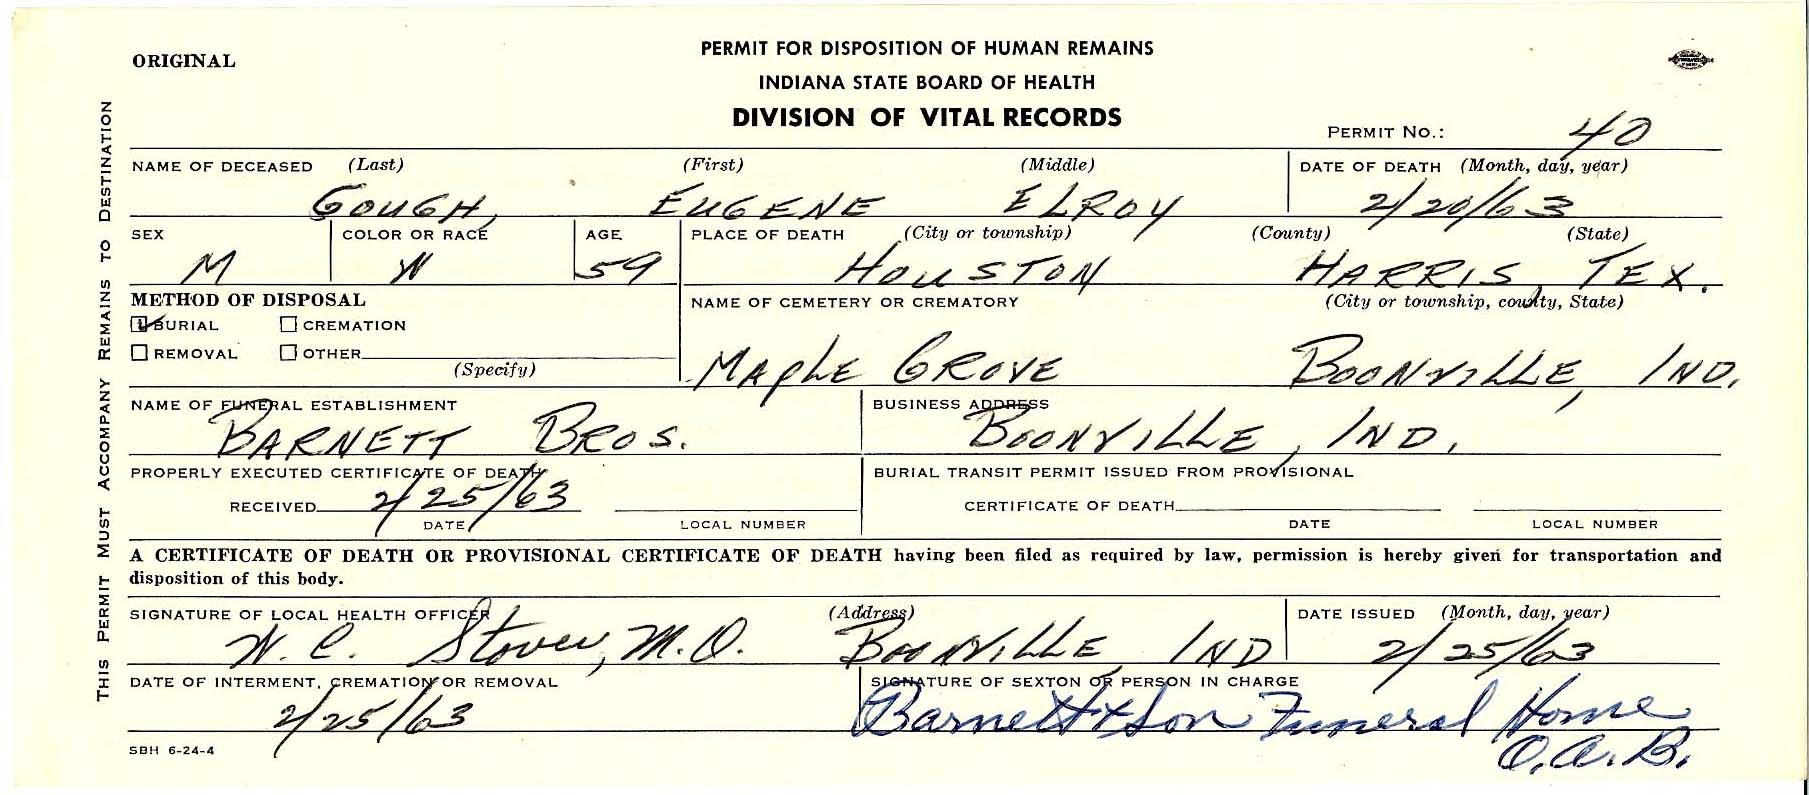 ORIGINAL
PERMIT FOR DISPOSITION OF HUMAN REMAINS
INDIANA STATE BOARD OF HEALTH
DIVISION OF VITAL RECORDS
PERMIT NO.: 40
THIS PERMIT MUST ACCOMPANY REMAINS TO DESTINATION
NAME OF DECEASED (Last) (First) (Middle) DATE OF DEATH (Month, day, year)
GOUGH, EUGENE ELROY 2/20/63
SEX COLOR OR RACE AGE PLACE OF DEATH (City or township) (County) (State)
M W 59 HOUSTON HARRIS, TEX.
METHOD OF DISPOSAL NAME OF CEMETERY OR CREMATORY (City or township, county, State)
BURIAL CREMATION
REMOVAL OTHER
(Specify)
MAPLE GROVE BOONVILLE, IND.
NAME OF FUNERAL ESTABLISHMENT BUSINESS ADDRESS
BARNETT BROS. BOONVILLE, IND.
PROPERLY EXECUTED CERTIFICATE OF DEATH BURIAL TRANSIT PERMIT ISSUED FROM PROVISIONAL
RECEIVED 2/25/63 CERTIFICATE OF DEATH
DATE LOCAL NUMBER DATE LOCAL NUMBER
A CERTIFICATE OF DEATH OR PROVISIONAL CERTIFICATE OF DEATH having been filed as required by law, permission is hereby given for transportation and
disposition of this body.
SIGNATURE OF LOCAL HEALTH OFFICER (Address) DATE ISSUED (Month, day, year)
W. C. Stover, M.D. BOONVILLE, IND 2/25/63
DATE OF INTERMENT, CREMATION OR REMOVAL SIGNATURE OF SEXTON OR PERSON IN CHARGE
2/25/63 Barnett + Son Funeral Home
O.A.B.
SBH 6-24-4